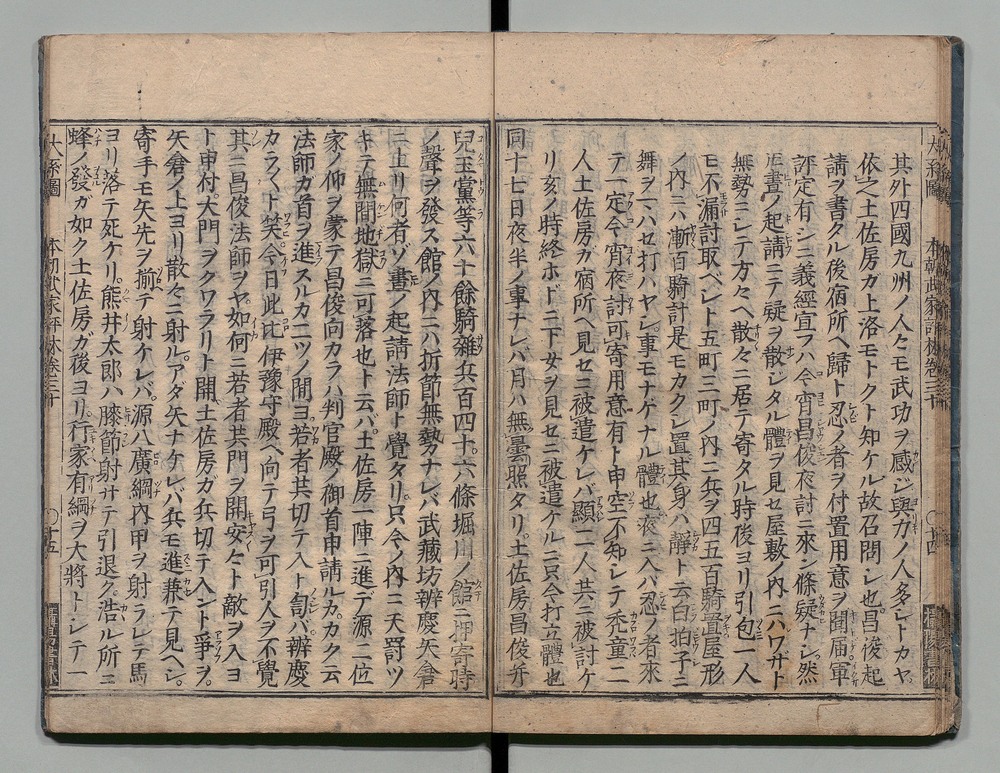 其外四國九州ノ人々モ武功ヲ感ジ與力ノ人多シトカヤ
依之土佐房ガ上洛モトクト知ケル故召問シ也昌俊起
請ヲ書タル後宿所ヘ歸ト忍ノ者ヲ付置用意ヲ聞届軍
評定有シニ義經宣フハ今宵昌俊夜討ニ來ン條疑ナシ然
晝ノ起請ニテ疑ヲ散シタル體ヲ見セ屋敷ノ内ニハワザト
無勢ニシテ方々ヘ散々ニ居テ寄タル時後ヨリ引包一人
モ不漏討取ベシト五町三町ノ内ニ兵ヲ四五百騎置屋形
ノ内ニハ漸百騎計是モカクシ置其身ハ靜ト云白拍子ニ
舞ヲマハセ打ハヤシ事モナゲナル體也夜ニ入バ忍ノ者來
テ一定今宵夜討可寄用意有ト申空不知シテ禿童二
人土佐房ガ宿所ヘ見セニ被遣ケレバ顯二人共ニ被討ケ
リ亥ノ時終ホドニ下女ヲ見セニ被遣ケルニ只今打立體也
同十七日夜半ノ事ナレバ月ハ無曇照タリ土佐房昌俊并
大系圖 本朝武家評林卷三十 ○十四
兒玉黨等六十餘騎雜兵百四十六條堀川ノ館ニ押寄時
ノ聲ヲ發ス館ノ内ニハ折節無勢ナレバ武藏坊辨慶矢倉
ニ上リ何者ゾ晝ノ起請法師ト覺タリ只今ノ内ニ天罸ツ
キテ無間地獄ニ可落也ト云バ土佐房一陣ニ進デ源二位
家ノ仰ヲ蒙テ昌俊向カラハ判官殿ノ御首申請ルカカク云
法師ガ首ヲ進スルカ二ツノ間ヨ若者共切テ入ト訇バ辨慶
カラ〱ト笑今日此比伊豫守殿ヘ向テ弓ヲ可引人ヲ不覺
其ニ昌俊法師ヲヤ如何ニ若者共門ヲ開安々ト敵ヲ入ヨ
ト申付大門ヲクワラリト開土佐房ガ兵切テ入ント爭ヲ
矢倉ノ上ヨリ散々ニ射ルアダ矢ナケレバ兵モ進兼テ見ヘシ
寄手モ矢先ヲ揃テ射ケレバ源八廣綱内甲ヲ射ラレテ馬
ヨリ落テ死ケリ熊井太郎ハ膝節射サテ引退ク浩ル所ニ
蜂ノ發ガ如ク土佐房ガ後ヨリ行家有綱ヲ大將トシテ一
大系圖 本朝武家評林卷三十 ○十五